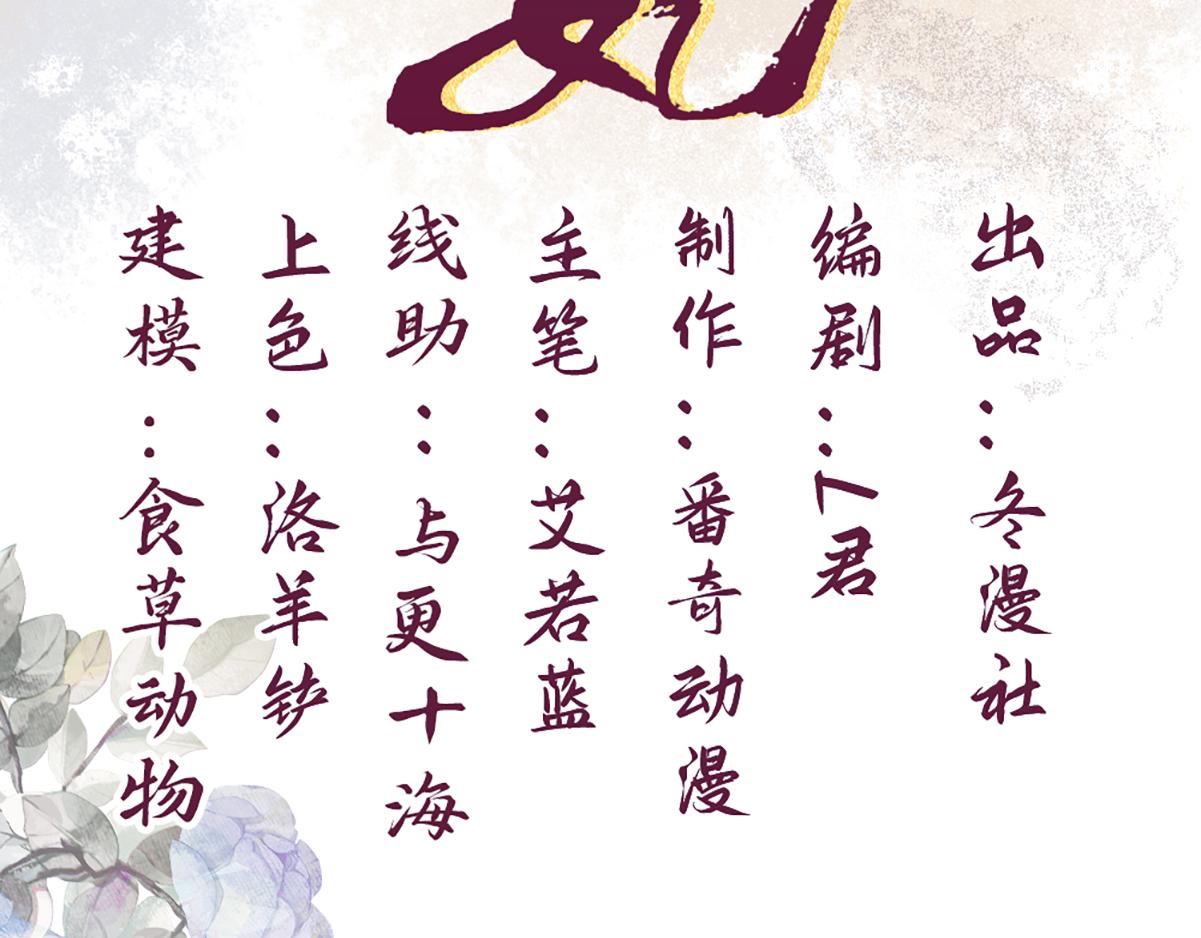 出品：冬漫社
编剧：T君
制作：番奇动漫
主笔：艾若蓝
线助：与更十海
上色：洛羊铲
建模：食草动物